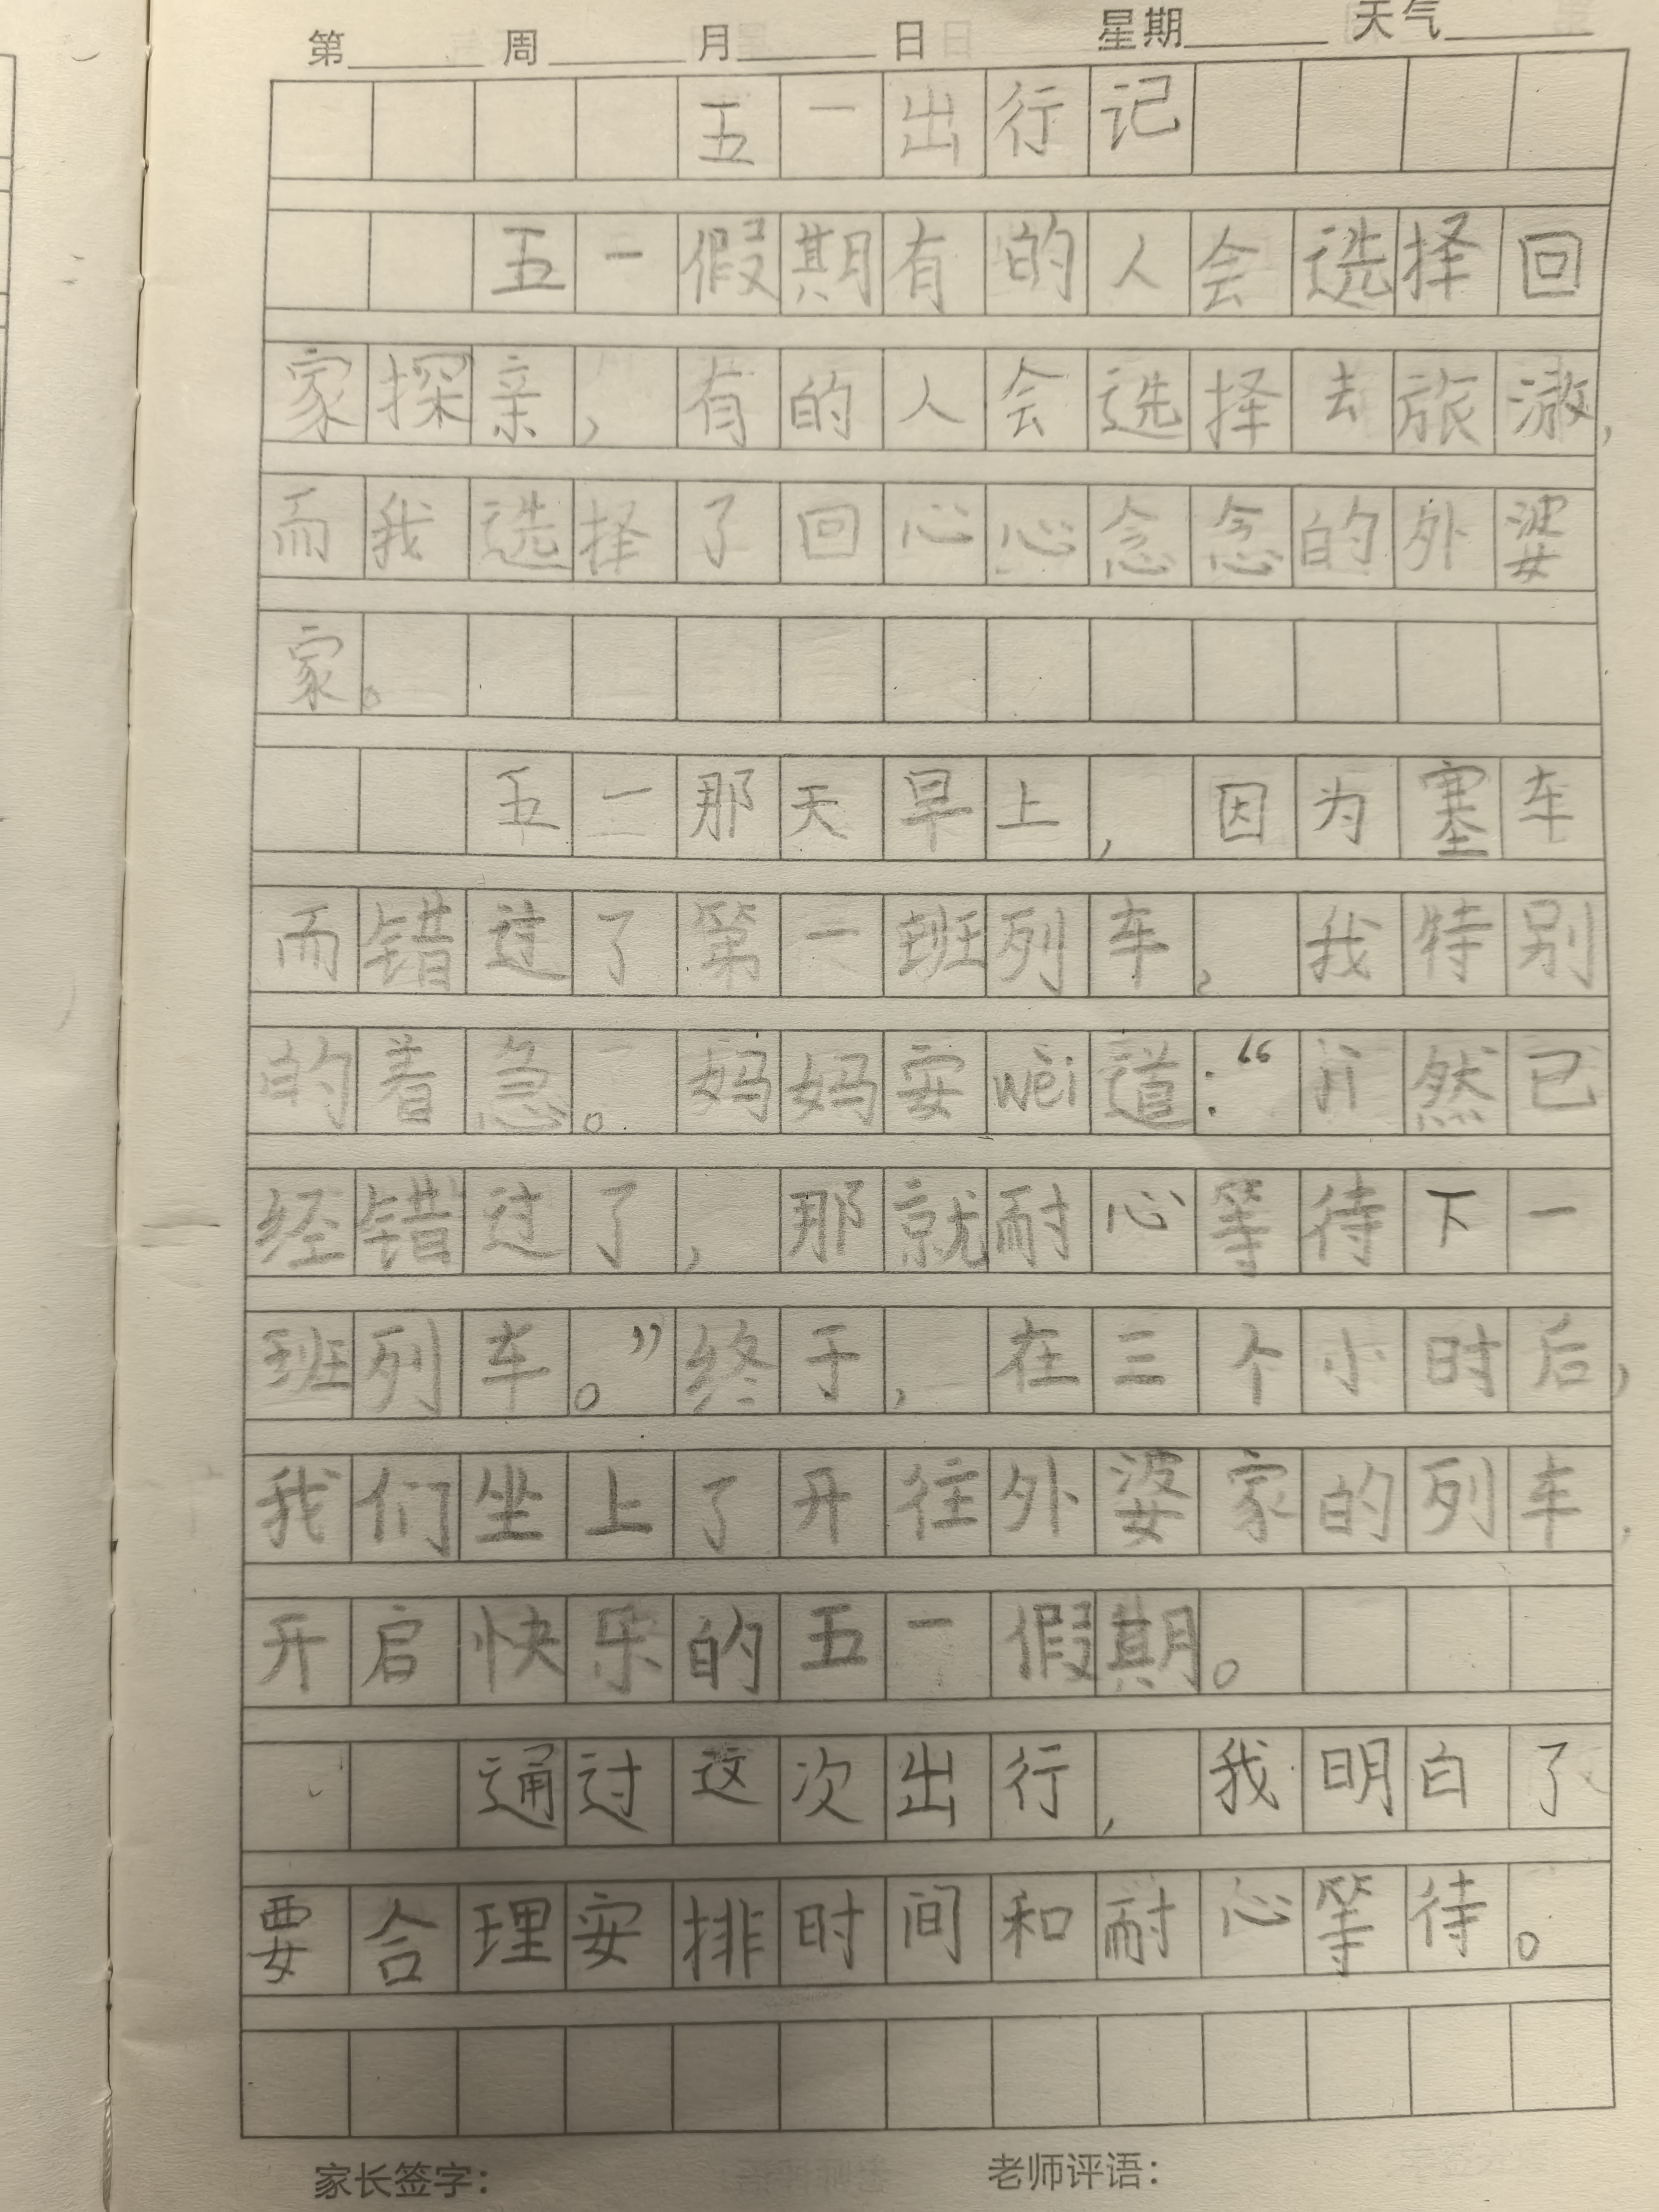 第 周 月 日 星期 天气
五一出行记
五一假期有的人会选择回
家探亲，有的人会选择去旅游，
而我选择了回心心念念的外婆
家。
五一那天早上，因为塞车
而错过了第一班列车，我特别
的着急。妈妈安wèi道：“jì然已
经错过了，那就耐心等待下一
班列车。”终于，在三个小时后，
我们坐上了开往外婆家的列车，
开启快乐的五一假期。
通过这次出行，我明白了
要合理安排时间和耐心等待。
家长签字： 老师评语：